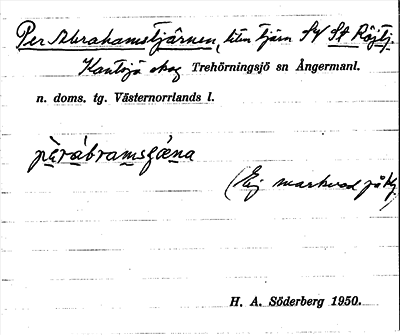 Per Abrahamstjärnen, liten tjärn SV St Röjtj.
Kantsjö skog Trehörningsjö sn Ångermanl.
n. doms. tg. Västernorrlands l.
pèrábramsʃæ̀na
(Ej markerad på kj.
H. A. Söderberg 1950.